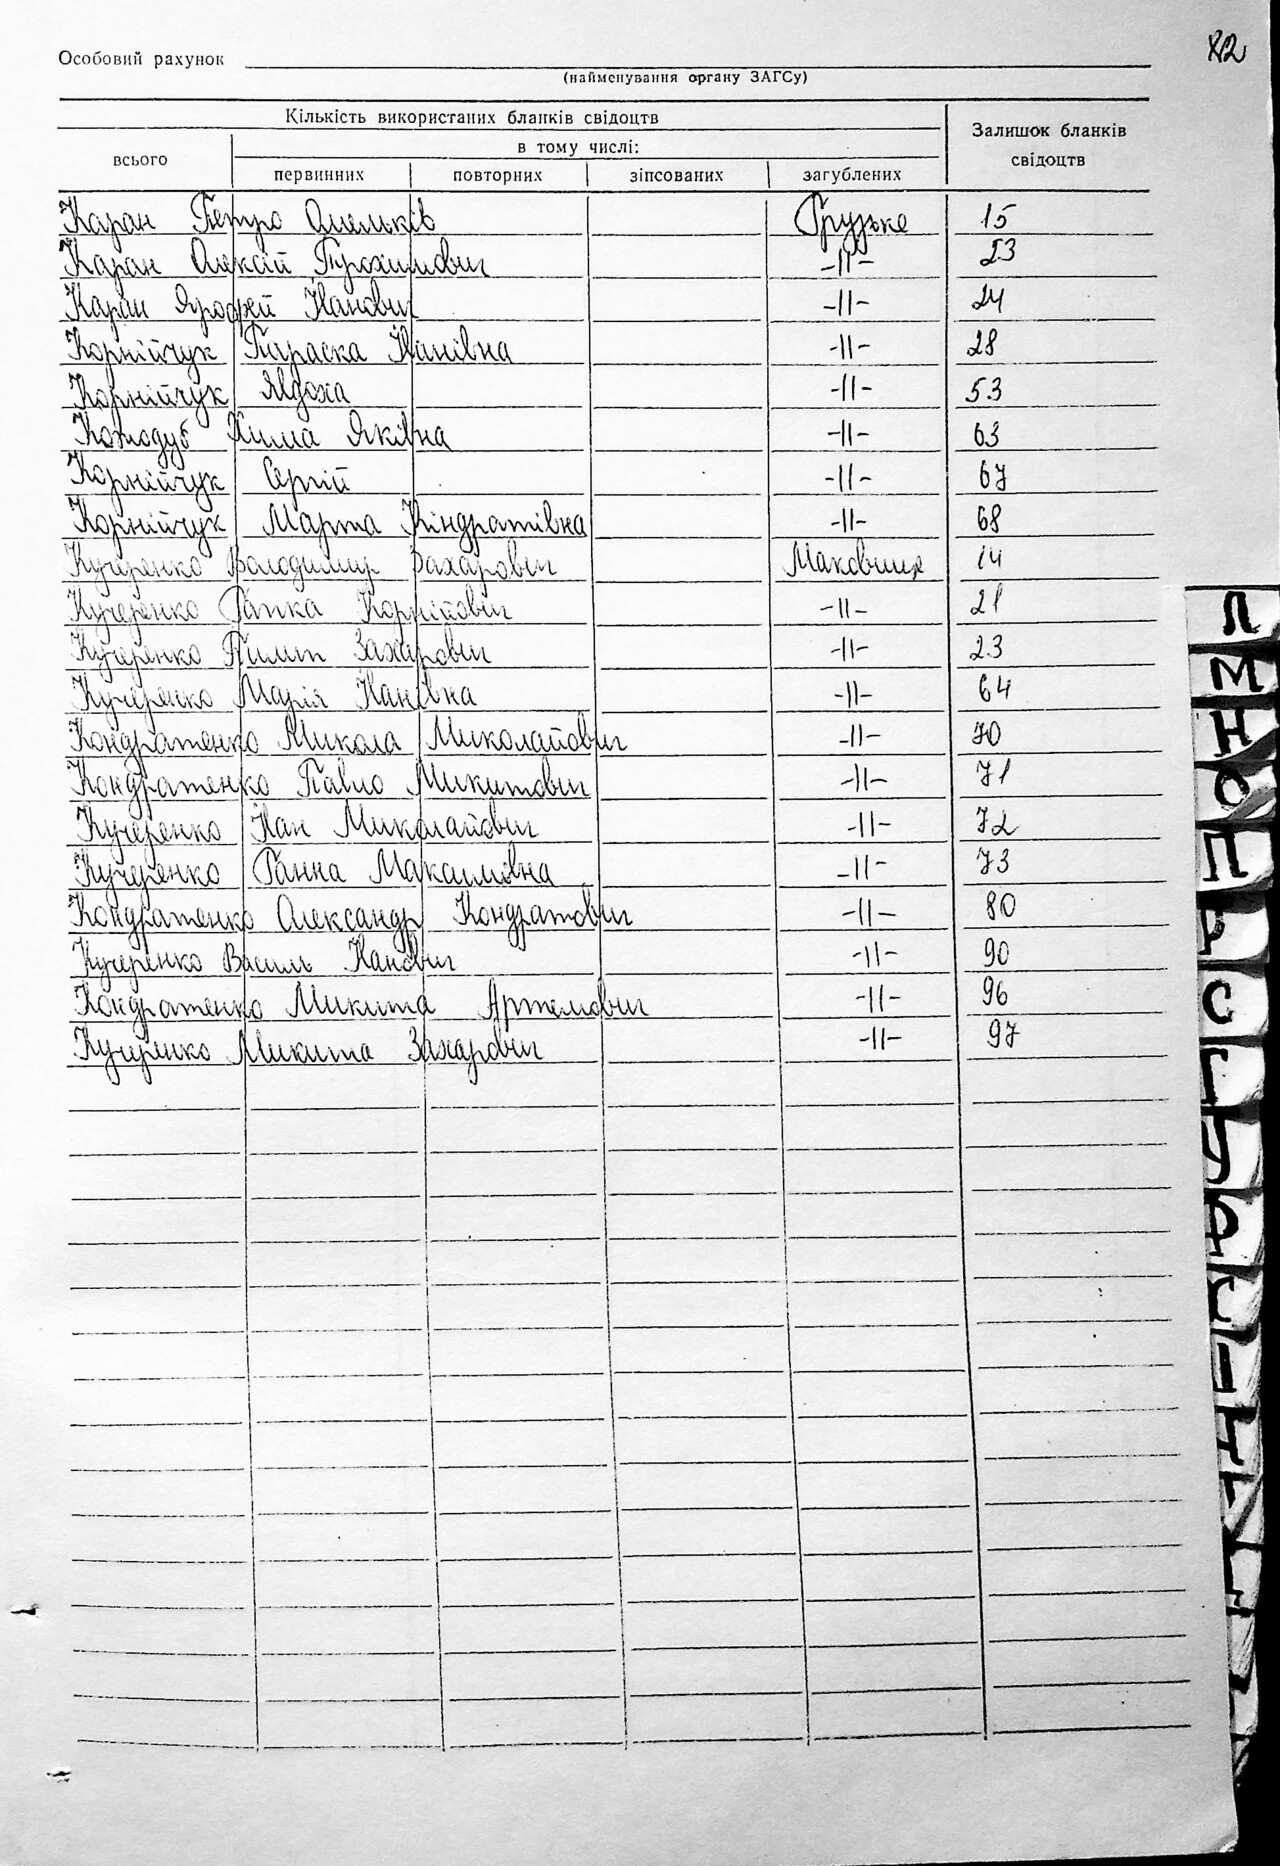 82
Особовий рахунок
(найменування органу ЗАГСу)
Кількість використаних бланків свідоцтв
Залишок бланків свідоцтв
всього
в тому числі:
первинних повторних зіпсованих загублених
Каран Петро Омельків Грузьке 15
Каран Олексій Прохимович -||- 23
Каран Ярофей Іванович -||- 24
Корнійчук Параска Іванівна -||- 28
Корнійчук Явдоха -||- 53
Кожодуб Хима Яківна -||- 63
Корнійчук Сергій -||- 67
Корнійчук Марта Кіндратівна -||- 68
Кучеренко Володимир Захарович Маковище 14
Кучеренко Гапка Корнійович -||- 21
Кучеренко Пилип Захарович -||- 23
Кучеренко Марія Іванівна -||- 64
Кондратенко Микола Миколайович -||- 70
Кондратенко Павло Микитович -||- 71
Кучеренко Іван Миколайович -||- 72
Кучеренко Ганна Максимовна -||- 73
Кондратенко Олександр Кондратович -||- 80
Кучеренко Василь Іванович -||- 90
Кондратенко Микита Артемович -||- 96
Кучеренко Микита Захарович -||- 97
Л
М
Н
О
П
Р
С
Т
У